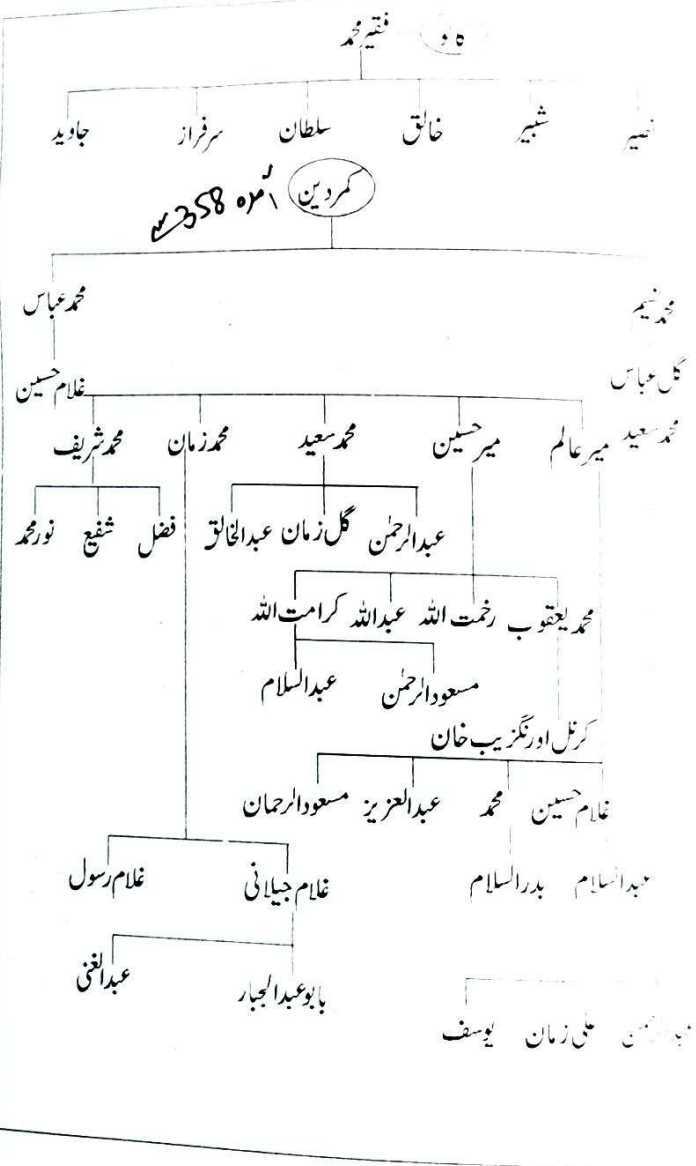 کالو فقیر محمد
نصیر شبیر خالق سلطان سرفراز جاوید
کمردین 358
محمد نسیم محمد عباس
گل عباس غلام حسین
محمد سعید میر عالم میر حسین محمد سعید محمد زمان محمد شریف
عبدالرحمٰن گل زمان عبدالخالق فضل شفیع نور محمد
محمد یعقوب رخمت اللہ عبداللہ کرامت اللہ
مسعود الرحمٰن عبدالسلام
کرنل اورنگزیب خان
غلام حسین محمد عبدالعزیز مسعود الرحمان
عبدالسلام بدرالسلام غلام جیلانی غلام رسول
بابو عبدالجبار عبدالغنی
علی زمان یوسف